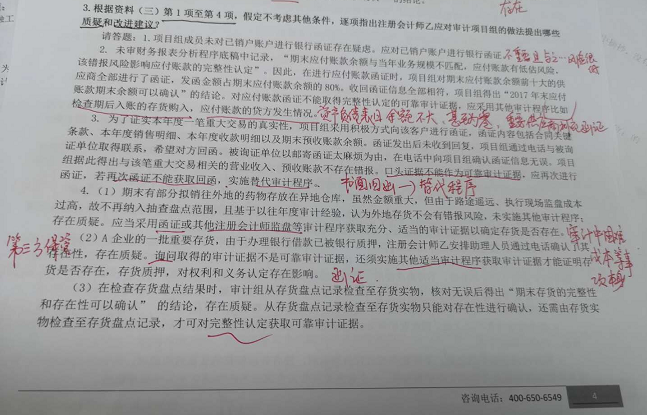 存在
3.根据资料（三）第1项至第4项，假定不考虑其他条件，逐项指出注册会计师乙应对审计项目组的做法提出哪些
质疑和改进建议？
请答题：1.项目组成员未对已销户账户进行银行函证存在疑虑。应对已销户账户进行银行函证
2. 未审财务报表分析程序底稿中记录，“期末应付账款余额与当年业务规模不匹配，应付账款有低估风险，
该错报风险影响应付账款的完整性认定”。因此，在进行应付账款函证时，项目组对期末应付账款余额前十大的供
应商全部进行了函证，发函金额占期末应付账款余额的 80%。收回函证信息全部相符，项目组得出“2017 年末应付
账款期末余额可以确认”的结论。对应付账款函证不能取得完整性认定的可靠审计证据，应采用其他审计程序比如
检查期后入账的存货购入，应付账款的贷方发生情况。
3. 为了证实本年度一笔重大交易的真实性，项目组采用积极方式向该客户进行函证，函证内容包括合同关键
条款、本年度销售明细、本年度收款明细以及期末预收账款余额。函证发出后未收到回复，项目组通过电话与被询
证单位取得联系，希望对方回函。被询证单位以邮寄函证太麻烦为由，在电话中向项目组确认函证信息无误。项目
组据此得出与该笔重大交易相关的营业收入、预收账款不存在错报。口头证据不能作为可靠审计证据，应再次进行
函证，若再次函证不能获取回函，实施替代审计程序。
4.（1）期末有部分拟销往外地的药物存放在异地仓库，虽然金额重大，但由于路途遥远、执行现场监盘成本
过高，故不再纳入抽查盘点范围，且基于以往年度审计经验，认为外地存货不会有错报风险，未实施其他审计程序；
存在质疑。应当采用函证或其他注册会计师监盘等审计程序获取充分、适当的审计证据以确定存货是否存在。
第三方保管
（2）A 企业的一批重要存货，由于办理银行借款已被银行质押，注册会计师乙安排助理人员通过电话确认其
性，存在质疑。询问取得的审计证据不是可靠审计证据，还须实施其他适当审计程序获取审计证据才能证明存
货是否存在，存货质押，对权利和义务认定存在影响。 函证
（3）在检查存货盘点结果时，审计组从存货盘点记录检查至存货实物，核对无误后得出“期末存货的完整性
和存在性可以确认” 的结论，存在质疑。从存货盘点记录检查至存货实物只能对存在性进行确认，还需由存货实
物检查至存货盘点记录，才可对完整性认定获取可靠审计证据。
咨询电话：400-650-6549
4